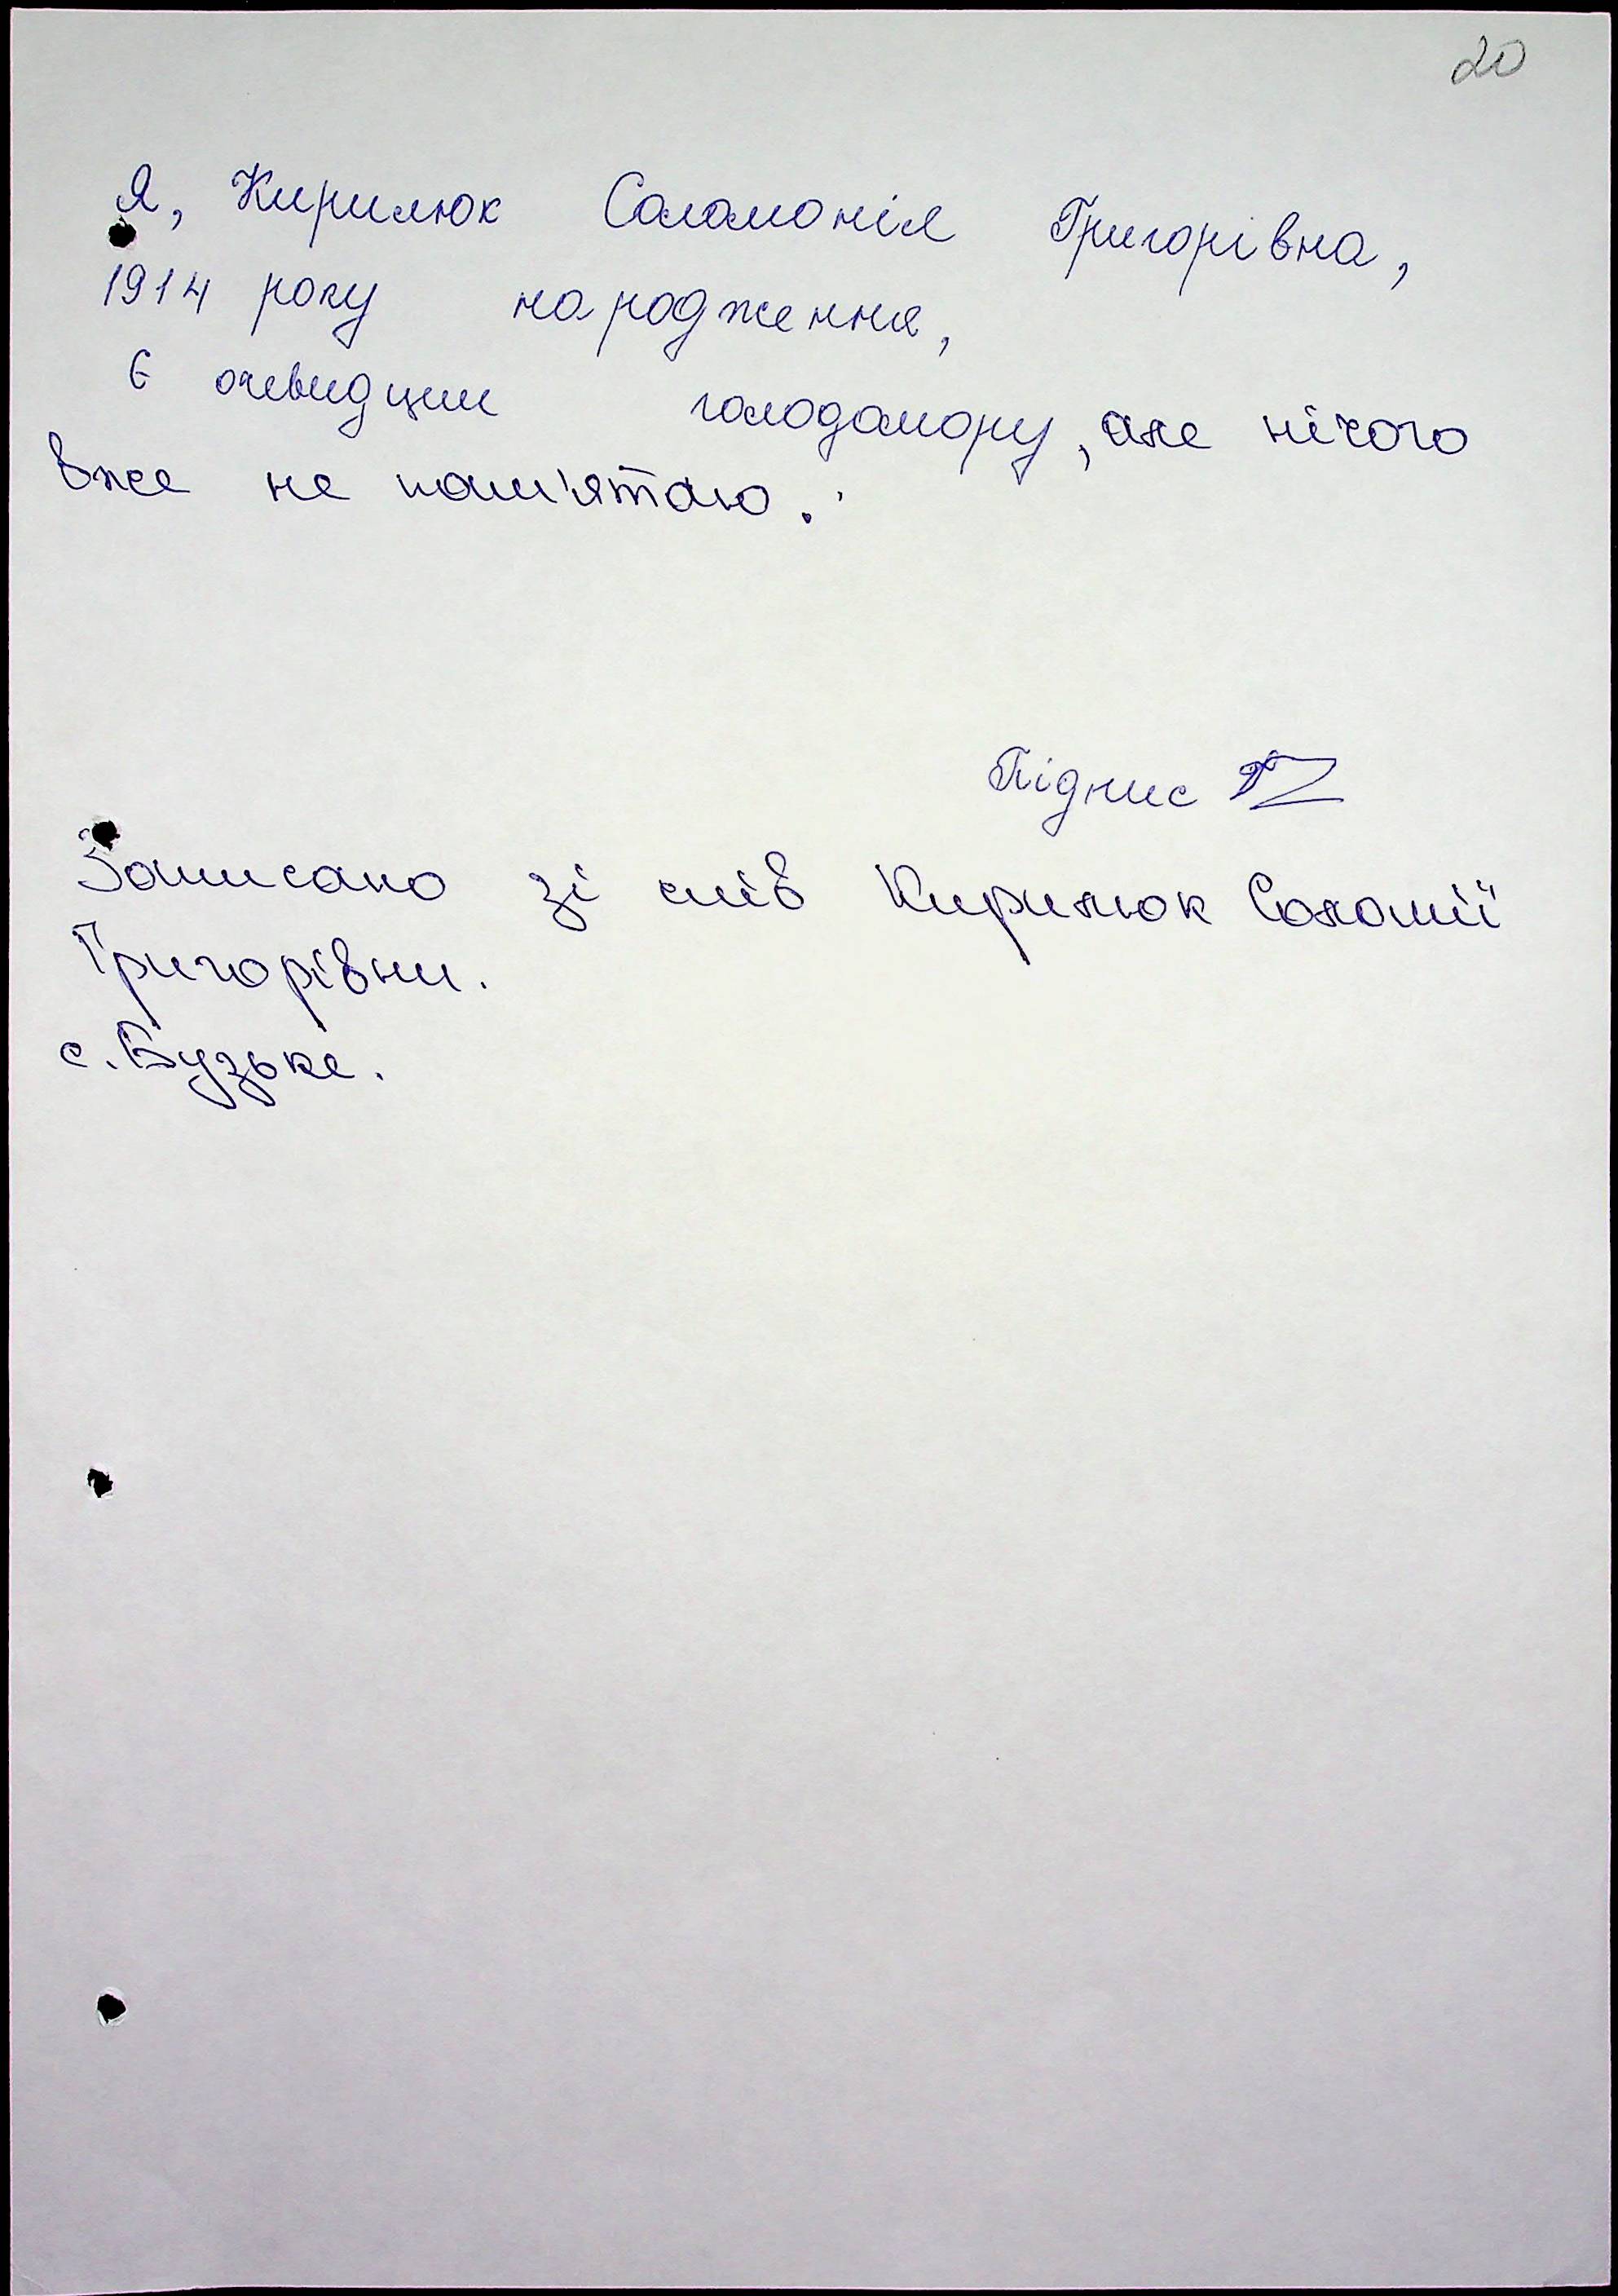 20
Я, Кирилюк Соломонія Григорівна,
1914 року народження,
є очевидцем голодомору, але нічого
вже не пам'ятаю.
Підпис
Записано зі слів Кирилюк Соломії
Григорівни.
с. Бузьке.